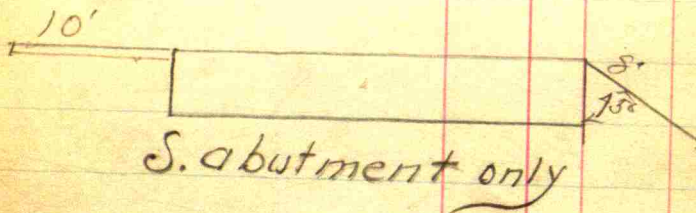 10'
8'
S. abutment only